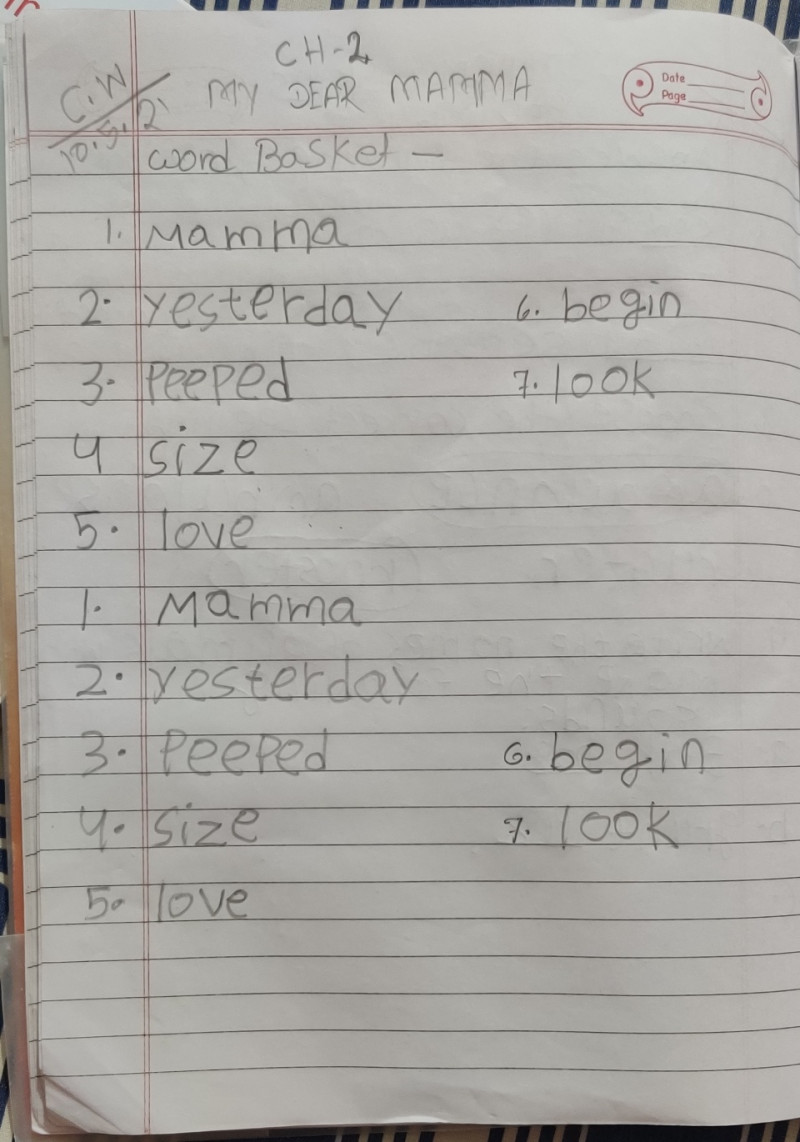 CH-2
C.W
MY DEAR MAMMA
Date
Page
word Basket —
1. Mamma
2. yesterday 6. begin
3. Peeped 7. look
4 size
5. love
1. Mamma
2. yesterday
3. Peeped 6. begin
4. size 7. look
5. love